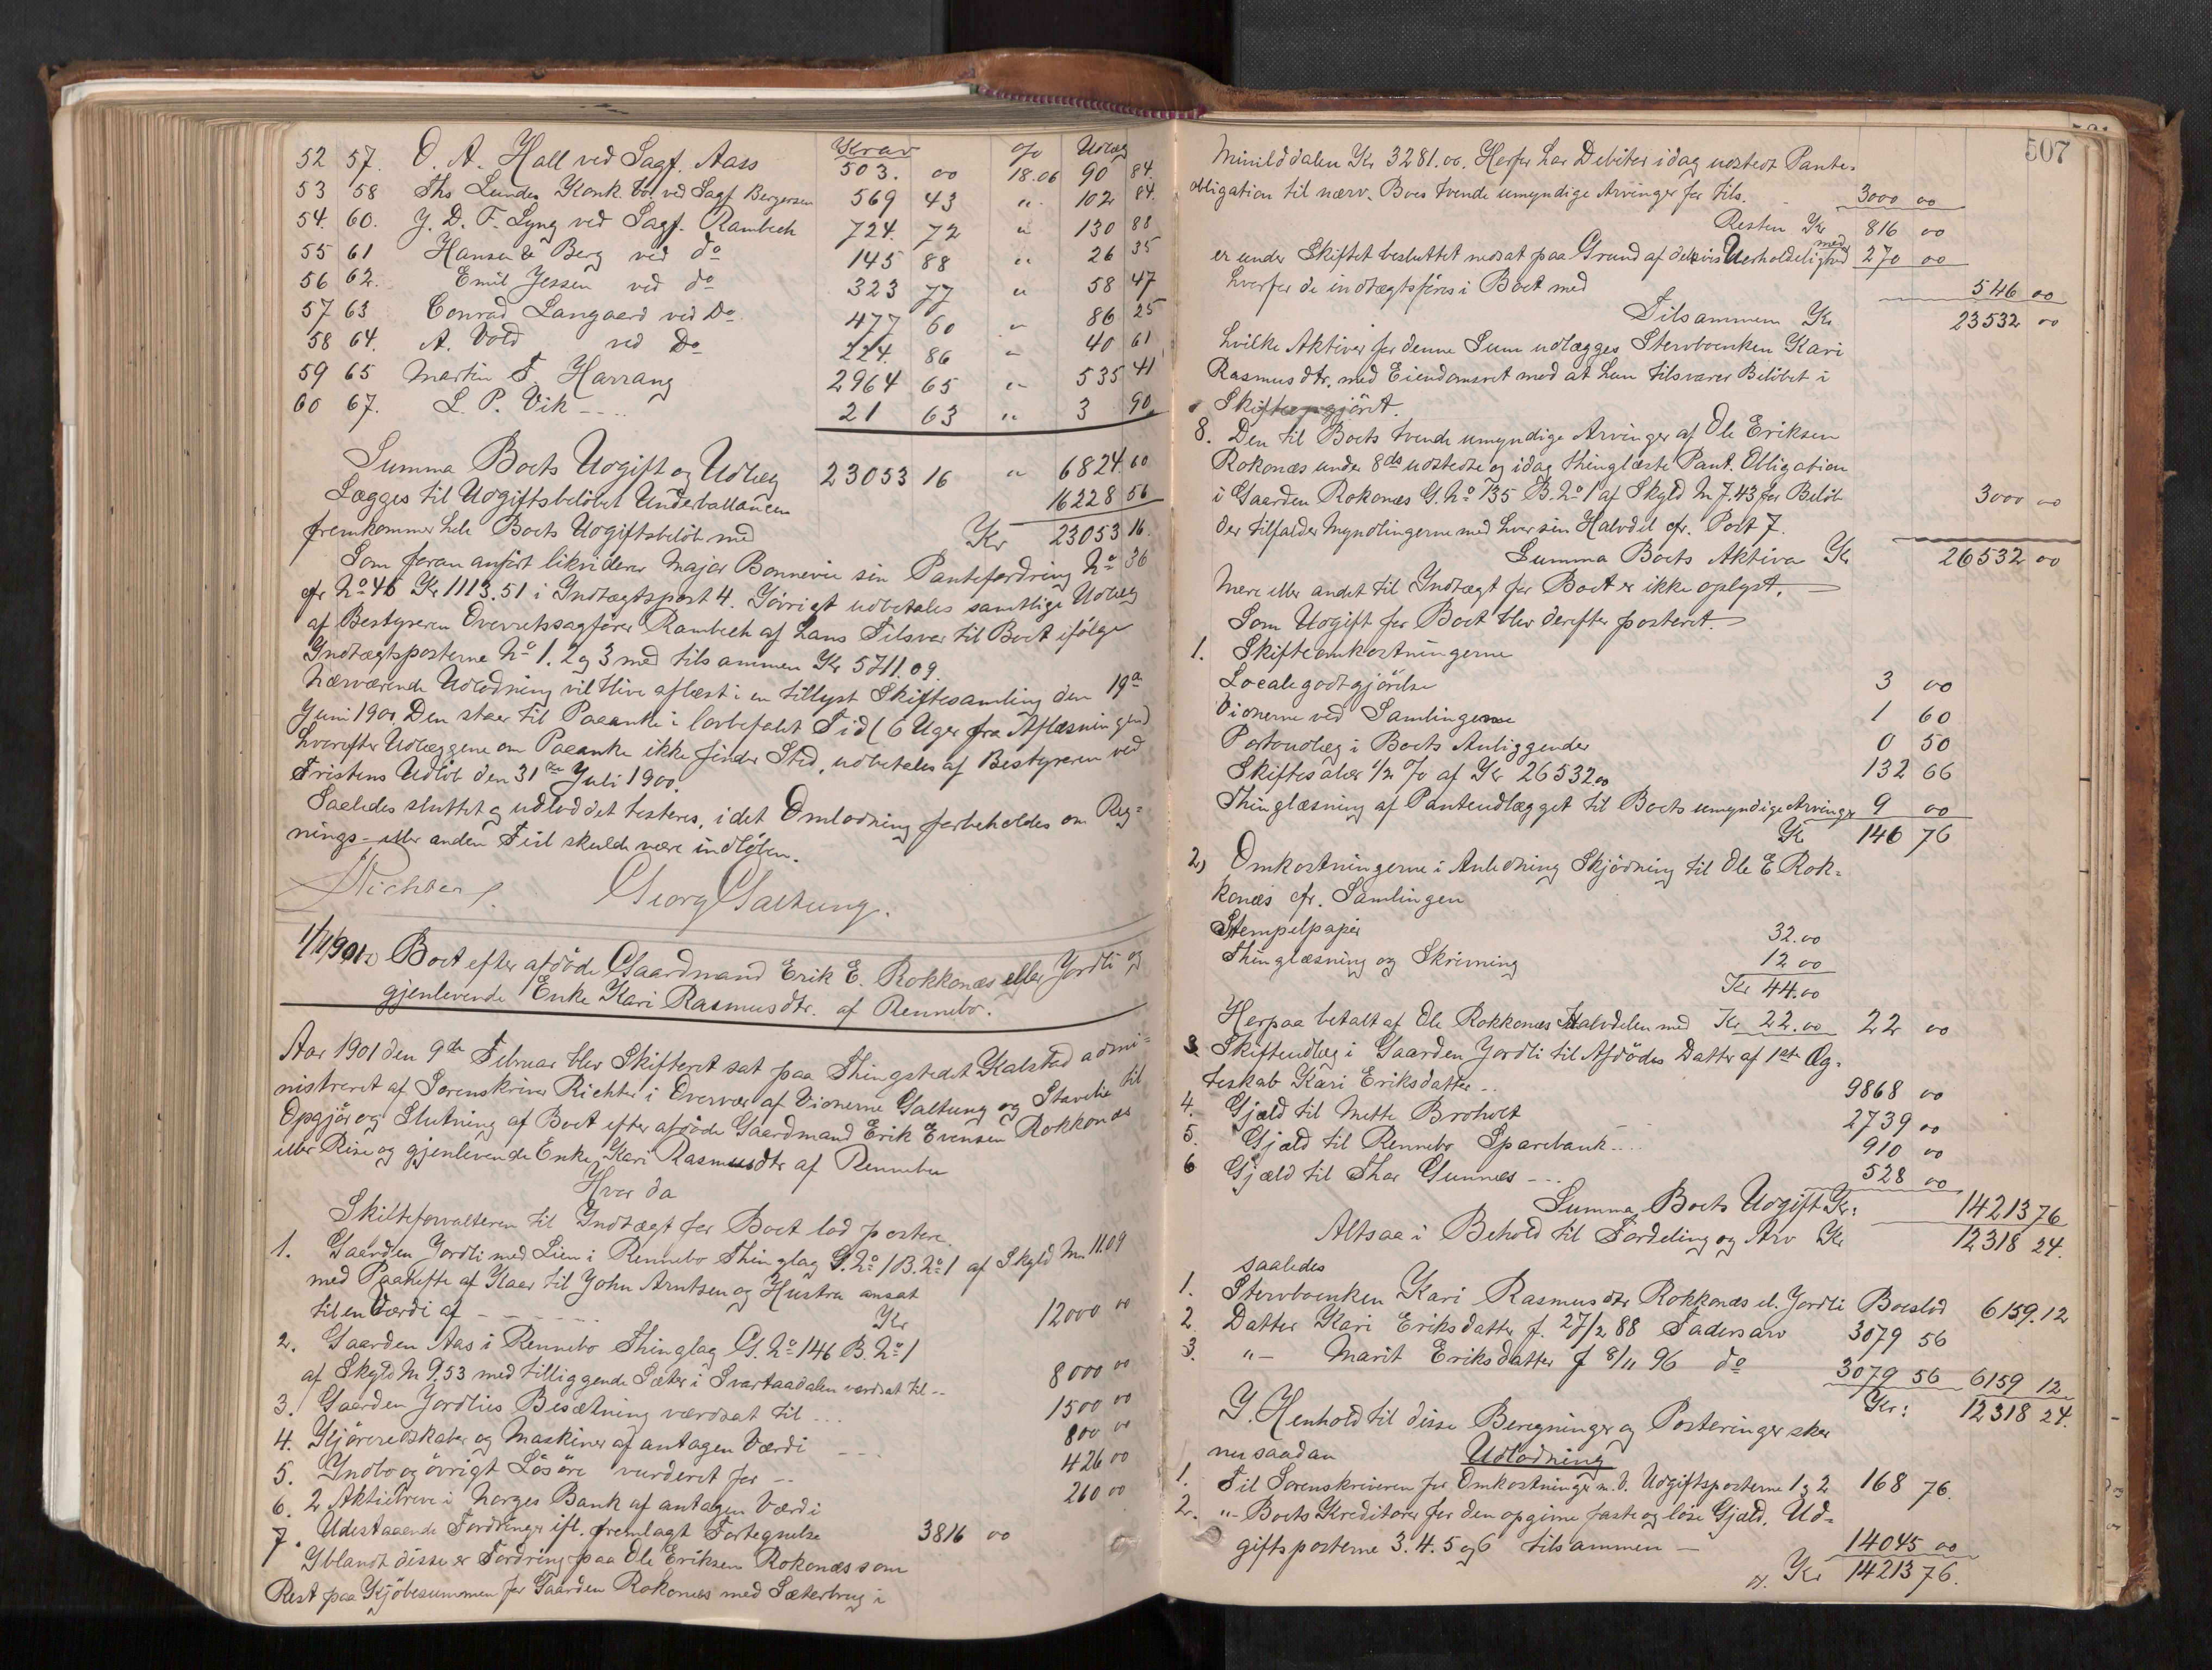 Krav % Udlæg
52 57. O. A. Hall ved Sagf. Aass 503. 00 18.06 90 84.
53 58 Ths Lundes Konk. bo ved Sagf Bergersen 569 43 " 102 84.
54. 60. J. D. F. Lyng ved Sagf. Rambech 724. 72 " 130 88
55 61 Hansen & Berg ved do 145 88 " 26 35
56 62. Emil Jessen ved do 323 77 " 58 47
57 63 Conrad Langaard ved Do 477 60 " 86 25
58 64. A. Vold ved Do 224. 86 " 40 61
59 65 Martin T. Harrang 2964 65 " 535 41
60 67. L. P. Vik 21 63 " 3 90
Summa Boets Udgift og Udlæg 23053 16 " 6824.60
Lægges til Udgiftsbeløbet Underballancen 16228 56
fremkommer hele Boets Udgiftsbeløb med Kr 23053 16.
Som foran anført likviderer Major Bonnevie sin Pantefordring No 36
cfr No 46 Kr 1113.51 i Indtægtspost 4. Iøvrigt udbetales samtlige Udlæg
af Bestyreren Overretssagfører Rambech af hans Tilsvar til Boet ifølge
Indtægtsposterne No 1. 2 og 3 med tilsammen Kr 5711.09.
Nærværende Udlodning vil blive aflæst i en tillyst Skiftesamling den 19de
Juni 1900. Den staar til Paaanke i lovbefalet Tid (6 Uger fra Aflæsningen)
hvorefter Udlæggene om Paaanke ikke finder Sted, udbetales af Bestyreren ved
Fristens Udløb den 31te Juli 1900.
Saaledes sluttet og udloddet testeres, idet Omlodning forbeholdes om Reg-
nings- eller anden Feil skulde være indløben.
Richter. Georg Galtung.
Boet efter afdøde Gaardmand Erik E. Rokkonæs eller Jordli og
gjenlevende Enke Kari Rasmusdtr. af Rennebo.
Aar 1901 den 9de Februar blev Skifteret sat paa Thingstedet Kalstad admi-
nistreret af Sorenskriver Richter i Overvær af Vidnerne Galtung og Stavlie til
Opgjør og Slutning af Boet efter afdøde Gaardmand Erik Evensen Rokkonæs
eller Rise og gjenlevende Enke Kari Rasmusdtr af Rennebu
Hvor da
Skifteforvalteren til Indtægt for Boet lod postere.
1. Gaarden Jordli med Lien i Rennebo Thinglag G. No 1 B. No 1 af Skyld M 11.09
med Paahefte af Kaar til John Arntsen og Hustru ansat
til en Værdi af Kr 12000 00
2. Gaarden Aas i Rennebo Thinglag G. No 146 B. No 1
af Skyld M 9.53 med tilliggende Sæter i Svartaadalen værdsat til 8000 00
3. Gaarden Jordlies Besætning værdsat til 1500 00
4. Kjøreredskaber og Maskiner af antagen Værdi 800 00
5. Indbo og øvrigt Løsøre vurderet for 426 00
6. 2 Aktiebreve i Norges Bank af antagen Værdi 260 00
7. Udestaaende Fordringer ifl. fremlagt Fortegnelse 3816 00
Iblandt disse er Fordring paa Ole Eriksen Rokonæs som
Rest paa Kjøbesummen for Gaarden Rokonæs med Sæterbrug i
507
Minilddalen Kr 3281.00. Herfor har Debitor idag udstedt Pante-
obligation til nærv. Boes tvende umyndige Arvinger for tils. 3000 00
Resten Kr 816 00
er under Skiftet besluttet nedsat paa Grund af delvis Uerholdelighed med 270 00
hvorfor de indtægtsføres i Boet med 546 00
Tilsammen Kr 23532 00
hvilke Aktiver for denne Sum udlægges Stervboenken Kari
Rasmusdtr. med Eiendomsret mod at hun tilsvarer Beløbet i
Skifteopgjøret.
8. Den til Boets tvende umyndige Arvinger af Ole Eriksen
Rokonæs under 8ds udstedte og idag thinglæste Pant. Obligation
i Gaarden Rokonæs G. No 135 B. No 1 af Skyld M 7.43 for Beløb 3000 00
der tilfalder Myndlingerne med hver sin Halvdel cfr. Post 7.
Summa Boets Aktiva Kr 26532 00
Mere eller andet til Indtægt for Boet er ikke oplyst.
Som Udgift for Boet blev derefter posteret.
1. Skifteomkostningerne
Localegodtgjørelse 3 00
Vidnerne ved Samlingerne 1 60
Portoudlæg i Boets Anliggender 0 50
Skiftesalær 1/2 % af Kr 26532.00 132 66
Thinglæsning af Panteudlægget til Boets umyndige Arvinger 9 00
Kr 146 76
2) Omkostningerne i Anledning Skjødning til Ole E Rok-
konæs cfr. Samlingen
Stempelpapir 32.00
Thinglæsning og Skrivning 12 00
Kr 44.00
Herpaa betalt af Ole Rokkonæs Halvdelen med Kr 22.00 22 00
3. Skifteudlæg i Gaarden Jordli til Afdødes Datter af 1ste Æg-
teskab Kari Eriksdatter 9868 00
4. Gjæld til Mette Broholt 2739 00
5. Gjæld til Rennebo Sparebank 910 00
6 Gjæld til Thor Gunnes 528 00
Summa Boets Udgift Kr: 14213 76
Altsaa i Behold til Fordeling og Arv Kr 12318 24.
saaledes
1. Stervboenken Kari Rasmusdtr Rokkonæs el. Jordli Boeslod 6159.12
2. Datter Kari Eriksdatter f. 27/2 88 Fadersarv 3079 56
3. "- Marit Eriksdatter f 8/11 96 do 3079 56 6159 12
Kr: 12318 24.
I Henhold til disse Beregninger og Posteringer sker
nu saadan Udlodning
1. Til Sorenskriveren for Omkostninger m. v. Udgiftsposterne 1 og 2 168 76.
2. "- Boets Kreditorer for den opgivne faste og løse Gjæld. Ud-
giftsposterne 3. 4. 5 og 6 tilsammen 14045 00
Kr 14213 76.